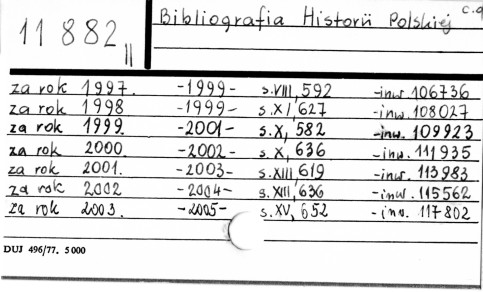 11 882 II
Bibliografia Historii Polskiej c.d
za rok 1997. -1999- s.VIII, 592 -inw. 106736
za rok 1998 -1999- s.XI, 627 -inw. 108027
za rok 1999. -2001- s.X, 582 -inw. 109923
za rok 2000 -2002- s.X, 636 -inw. 111935
za rok 2001. -2003- s.XIII, 619 -inw. 113983
za rok 2002 -2004- s.XIII, 636 -inw. 115562
za rok 2003. -2005- s.XV, 652 -inw. 117802
DUJ 496/77. 5 000